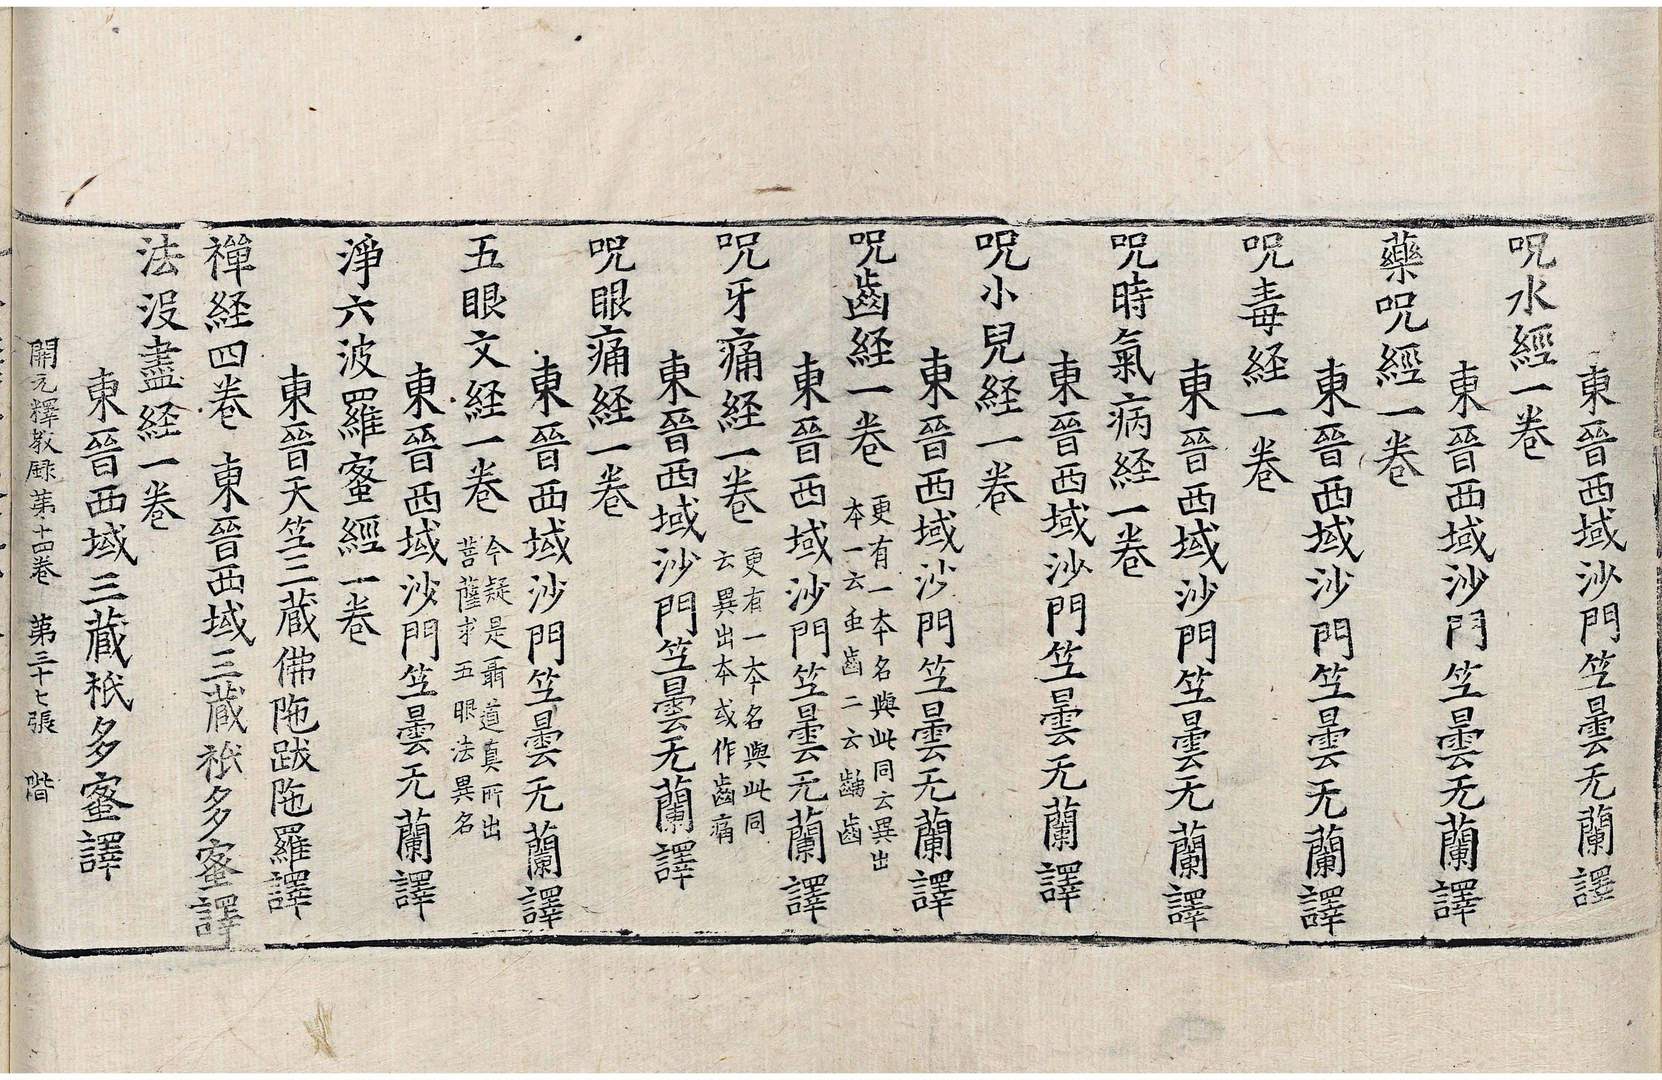 東晉西域沙門竺曇无蘭譯
呪水經一卷
東晉西域沙門竺曇无蘭譯
藥呪經一卷
東晉西域沙門竺曇无蘭譯
呪毒経一卷
東晉西域沙門竺曇无蘭譯
呪時氣病経一卷
東晉西域沙門竺曇无蘭譯
呪小兒経一卷
東晉西域沙門竺曇无蘭譯
呪齒経一卷 更有一本名與此同云異出
本一云虫齒二云齲齒
東晉西域沙門竺曇无蘭譯
呪牙痛経一卷 更有一本名與此同
云異出本或作齒痛
東晉西域沙門竺曇无蘭譯
呪眼痛経一卷
東晉西域沙門竺曇无蘭譯
五眼文経一卷 今疑是聶道真所出
菩薩求五眼法異名
東晉西域沙門竺曇无蘭譯
淨六波羅蜜經一卷
東晉天竺三藏佛陁跋陁羅譯
禪経四卷 東晉西域三藏祇多蜜譯
法沒盡経一卷
東晉西域三藏祇多蜜譯
開元釋教録第十四卷 第三十七張 階